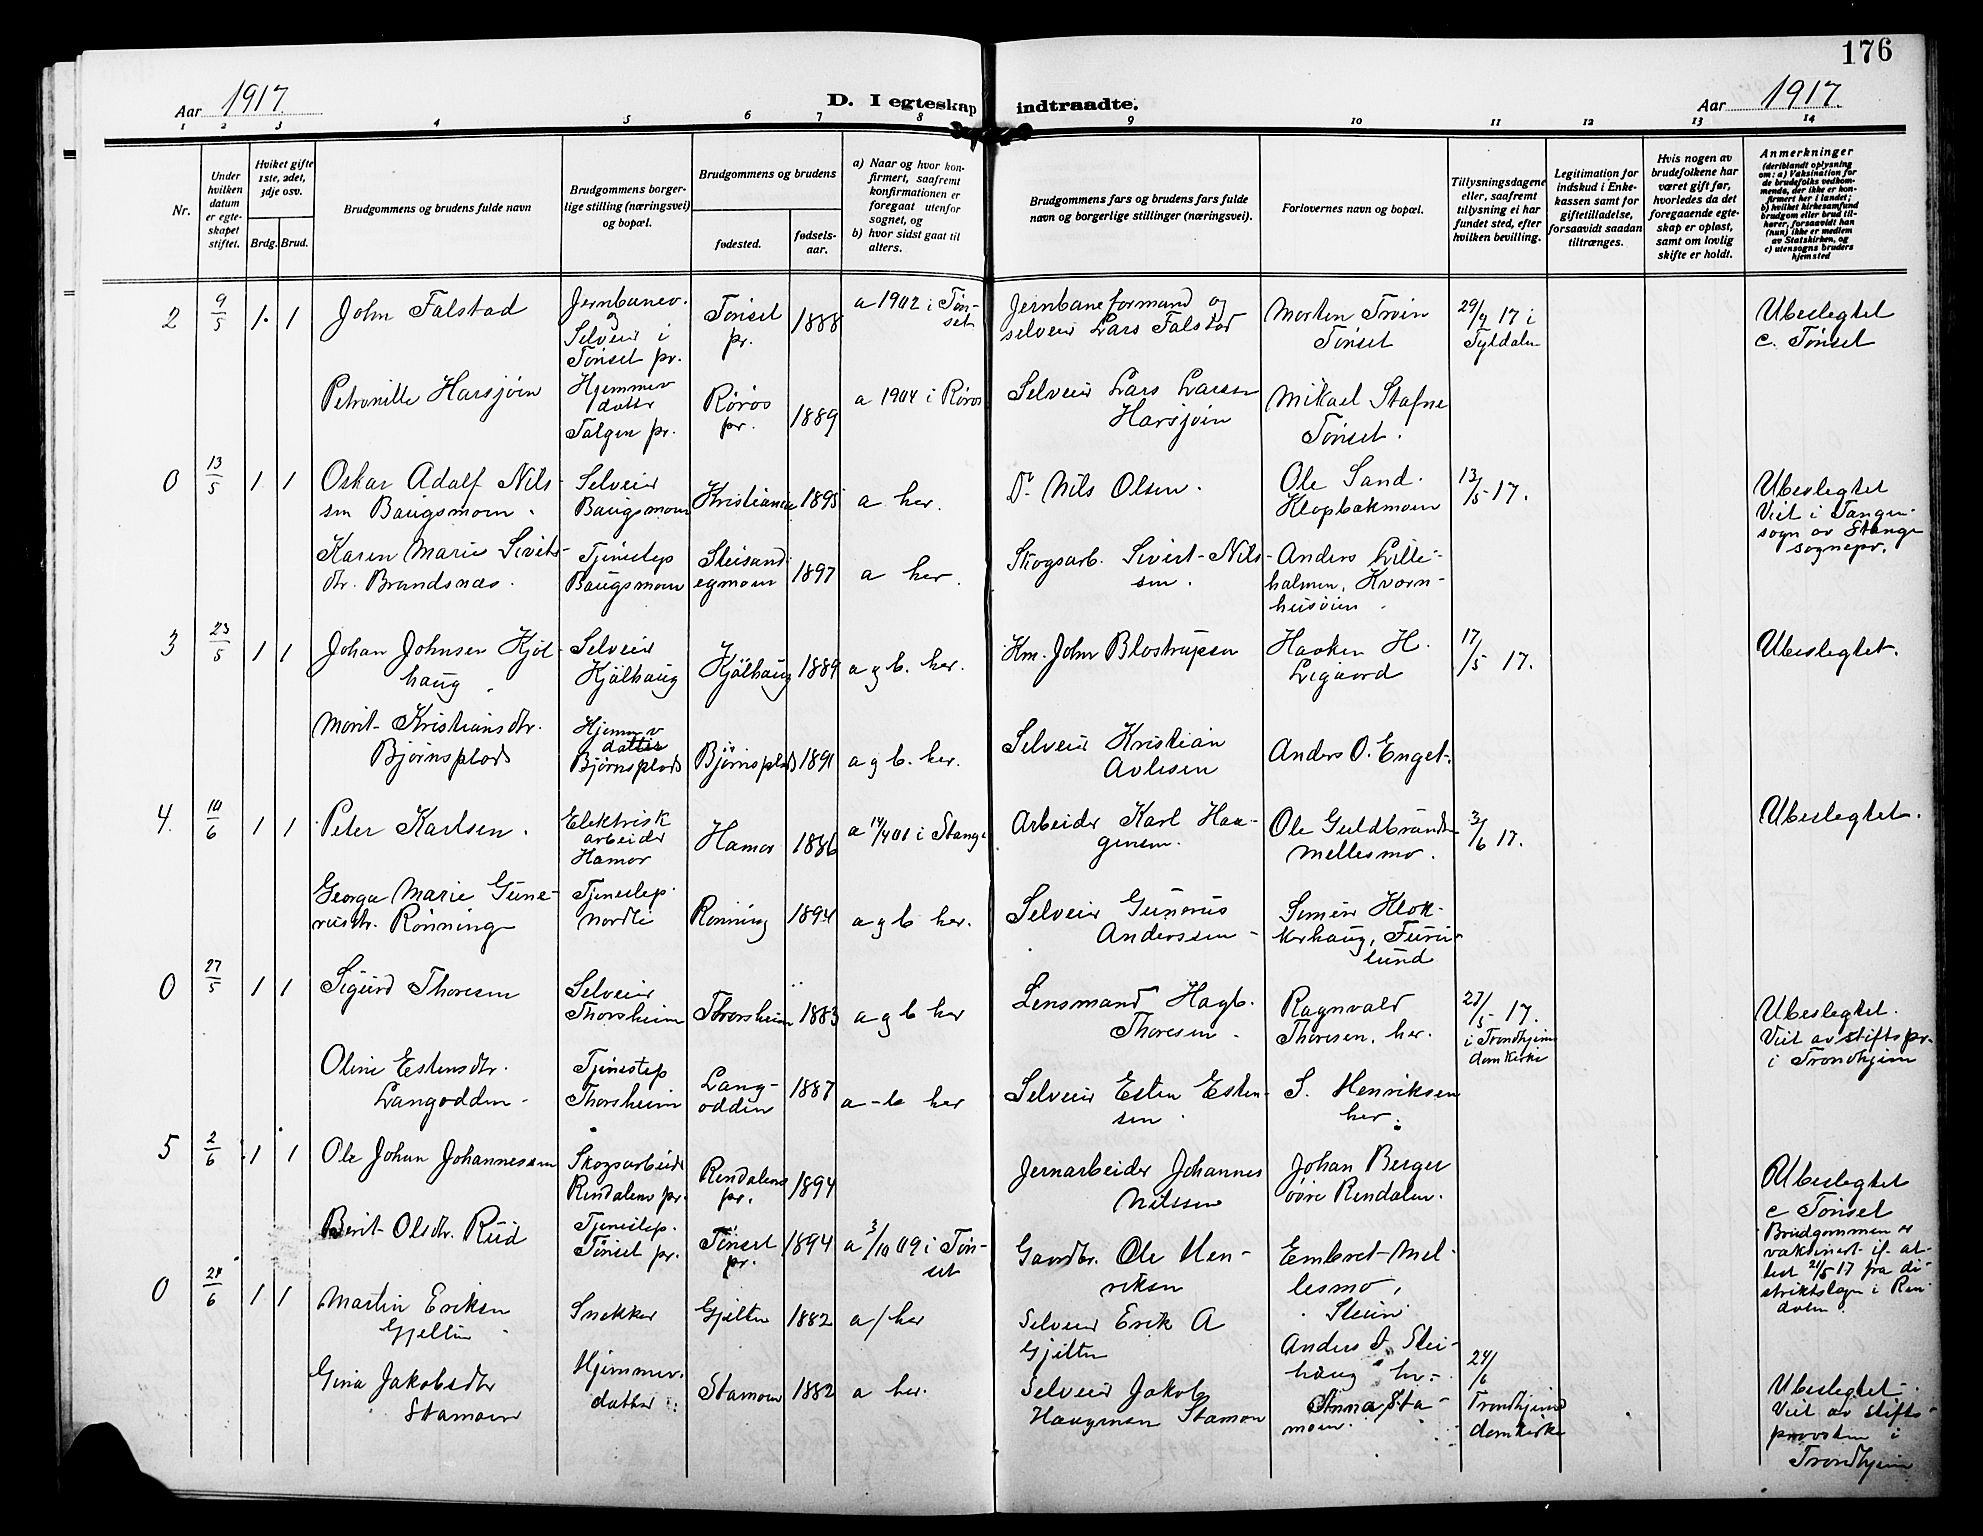 176
Aar 1917.
D. I egteskap indtraadte.
Aar 1917.
1 2 3 4 5 6 7 8 9 10 11 12 13 14
Nr.
Under hvilken datum er egteskapet stiftet.
Hviket gifte 1ste, 2det, 3dje osv.
Brdg. Brud.
Brudgommens og brudens fulde navn
Brudgommens borgerlige stilling (næringsvei) og bopæl.
Brudgommens og brudens
fødested.
fødselsaar.
a) Naar og hvor konfirmert, saafremt konfirmationen er foregaat utenfor sognet, og
b) hvor sidst gaat til alters.
Brudgommens fars og brudens fars fulde navn og borgerlige stillinger (næringsvei).
Forlovernes navn og bopæl.
Tillysningsdagene eller, saafremt tillysning ei har fundet sted, efter hvilken bevilling.
Legitimation for indskud i Enkekassen samt for giftetilladelse, forsaavidt saadan tiltrænges.
Hvis nogen av brudefolkene har været gift før, hvorledes da det foregaaende egteskap er opløst, samt om lovlig skifte er holdt.
Anmerkninger (deriblandt oplysning om: a) Vaksination for de brudefolks vedkommende, der ikke er konfirmert her i landet; b) hvilket kirkesamfund brudgom eller brud tilhører, forsaavidt han (hun) ikke er medlem av Statskirken, og c) utensogns bruders hjemsted
2 9/5 1. 1 John Falstad Jernbanev. og Selveier i Tønset pr. Tønset pr. 1888 a 1902 i Tønset Jernbaneformand og selveier Lars Falstad Morten Trøen Tønset 29/4 17 i Tyldalen Ubeslegtet c. Tønset
Petronille Harsjøen Hjemmev datter Tolgen pr. Røros pr. 1889 a 1904 i Røros Selveier Lars Larsen Harsjøen Mikael Stafne Tønset.
0 13/5 1 1 Oskar Adolf Nilssen Baugsmoen. Selveier Baugsmoen Kristiania 1895 a her. Dr Nils Olsen. Ole Sand. Klopbakmoen 13/5 17. Ubeslegtet Viet i Tangen sogn av Stange sognepr.
Karen Marie Sivertsdtr. Brandsnæs. Tjenestep Baugsmoen Steisandegmoen 1897 a her. Skogsarb. Sivert Nilssen. Anders Lilleholmen, Kvernhusøien
3 23/5 1 1 Johan Johnsen Kjølhaug Selveier Kjølhaug Kjølhaug 1889 a g b. her. Km. John Blostrupsen Haaken H. Ligaard 17/5 17. Ubeslegtet.
Marit Kristiansdtr. Bjørnsplads Hjemmev datter Bjørnsplads Bjørnsplads 1891 a g b. her. Selveier Kristian Avlesen Anders O. Enget.
4. 10/6 1 1 Peter Karlsen. Elektrisk arbeider Hamar Hamar 1886 a 14/4 01 i Stange Arbeider Karl Haagensen. Ole Guldbrandsen Mellesmo. 3/6 17. Ubeslegtet.
Georga Marie Gunerusdtr. Rønning Tjenestep. Nordli Rønning 1894 a g b her. Selveier Gunerus Anderssen Simen Klokkerhaug, Furulund
0 27/5 1 1 Sigurd Thoresen Selveier Thorsheim Thorsheim 1883 a g b her Lensmand Hagb. Thoresen. Ragnvald Thoresen, her. 27/5 17. i Trondhjems domkirke Ubeslegtet. Viet av stiftspr. i Trondhjem
Oline Estensdtr. Langodden Tjenestep Thorsheim Langodden 1887 a-b her Selveier Esten Estensen S. Henriksen her.
5 2/6 1 1 Ole Johan Johannessen Skogsarbeider Rendalens pr. Rendalens pr. 1894 Jernarbeider Johannes Nilssen Johan Berger øvre Rendalen. Ubeslegtet c Tønset
Berit Olsdtr. Rud Tjenestep. Tønset pr. Tønset pr. 1894 a 3/10 09 i Tønset Gaardbr. Ole Henriksen Embret Mellesmo, Steien Brudgommen er vaksinert if. attest 21/5 17 fra distriktslægen i Rendalen.
0 24/6 1 1 Martin Eriksen Gjelten Snekker Gjelten 1882 a / her Selveier Erik A Gjelten Anders J. Steihaug her
Gina Jakobsdtr Stamoen Hjemmev. datter Stamoen 1882 a her. Selveier Jakob Haagensen Stamoen Anna Stamoen. 24/6 Trondhjems domkirke Ubeslegtet. Viet av stiftsprovsten i Trondhjem